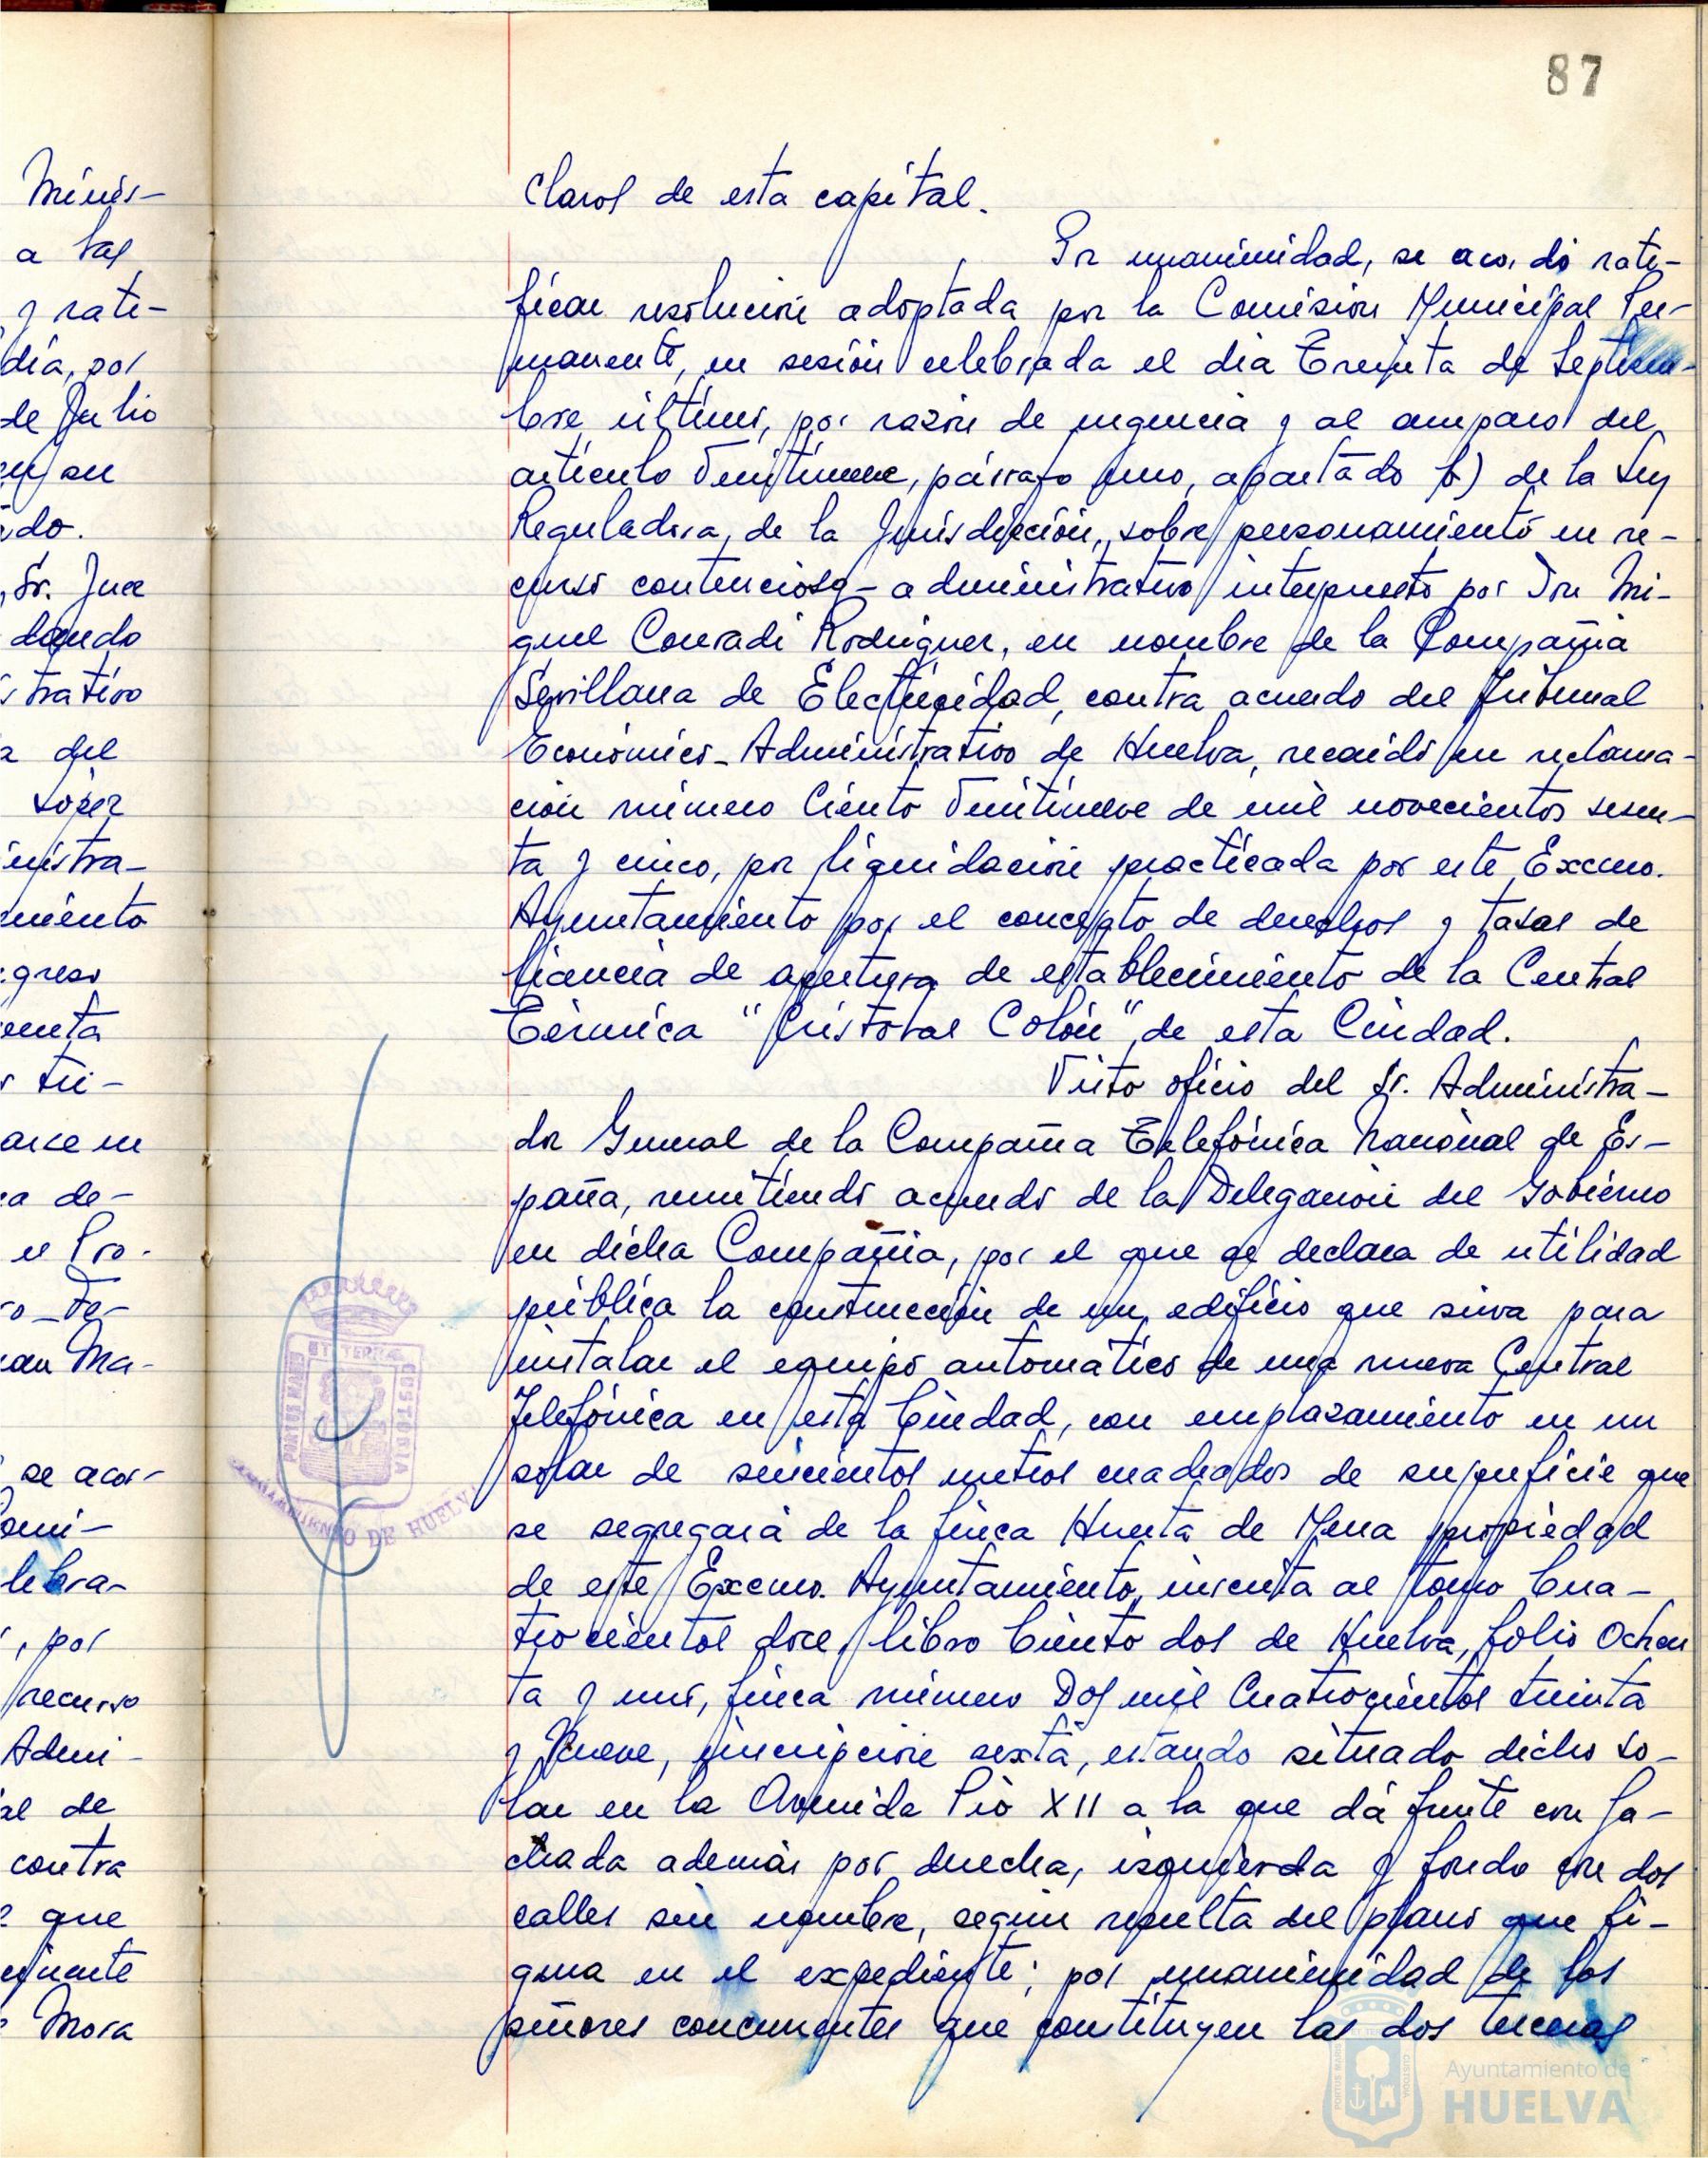 87
Minis-
a las
y rati-
día, por
de Julio
en su
do.
Sr. Juez
dando
trativo
del
López
nistra-
miento
greso
enta
Tri-
arse en
a de-
el Pro-
an Ma-
se acor-
lebra-
, por
recurso
Admi-
al de
contra
que
Mora
claros de esta capital.
Por unanimidad, se acordó rati-
ficar resolución adoptada por la Comisión Municipal Per-
manente, en sesión celebrada el día Treinta de Septiem-
bre último, por razón de urgencia y al amparo del
artículo Veintinueve, párrafo uno, apartado b) de la Ley
Reguladora de la Jurisdicción, sobre personamiento en re-
curso contencioso-administrativo interpuesto por Don Mi-
guel Conradi Rodríguez, en nombre de la Compañía
Sevillana de Electricidad, contra acuerdo del Tribunal
Económico-Administrativo de Huelva, recaído en reclama-
ción número Ciento Veintinueve de mil novecientos sesen-
ta y cinco, por liquidación practicada por este Excmo.
Ayuntamiento por el concepto de derechos y tasas de
licencia de apertura de establecimiento de la Central
Térmica "Cristobal Colón", de esta Ciudad.
Visto oficio del Sr. Administra-
dor General de la Compañía Telefónica Nacional de Es-
paña, remitiendo acuerdo de la Delegación del Gobierno
en dicha Compañía, por el que se declara de utilidad
pública la construcción de un edificio que sirva para
instalar el equipo automático de una nueva Central
Telefónica en esta Ciudad, con emplazamiento en un
solar de seiscientos metros cuadrados de superficie que
se segregará de la finca Huerta de Mena propiedad
de este Excmo. Ayuntamiento, inscrita al tomo Cua-
trocientos doce, libro Ciento dos de Huelva, folio Ochen
ta y uno, finca número Dos mil Cuatrocientos treinta
y Nueve, inscripción sexta, estando situado dicho so-
lar en la Avenida Pio XII a la que dá frente con fa-
chada además por derecha, izquierda y fondo con dos
calles sin nombre, según resulta del plano que fi-
gura en el expediente; por unanimidad de los
señores concurrentes que constituyen las dos terceras
PORTUS MARIS ET TERRAE CUSTODIA
AYUNTAMIENTO DE HUELVA
Ayuntamiento de
HUELVA